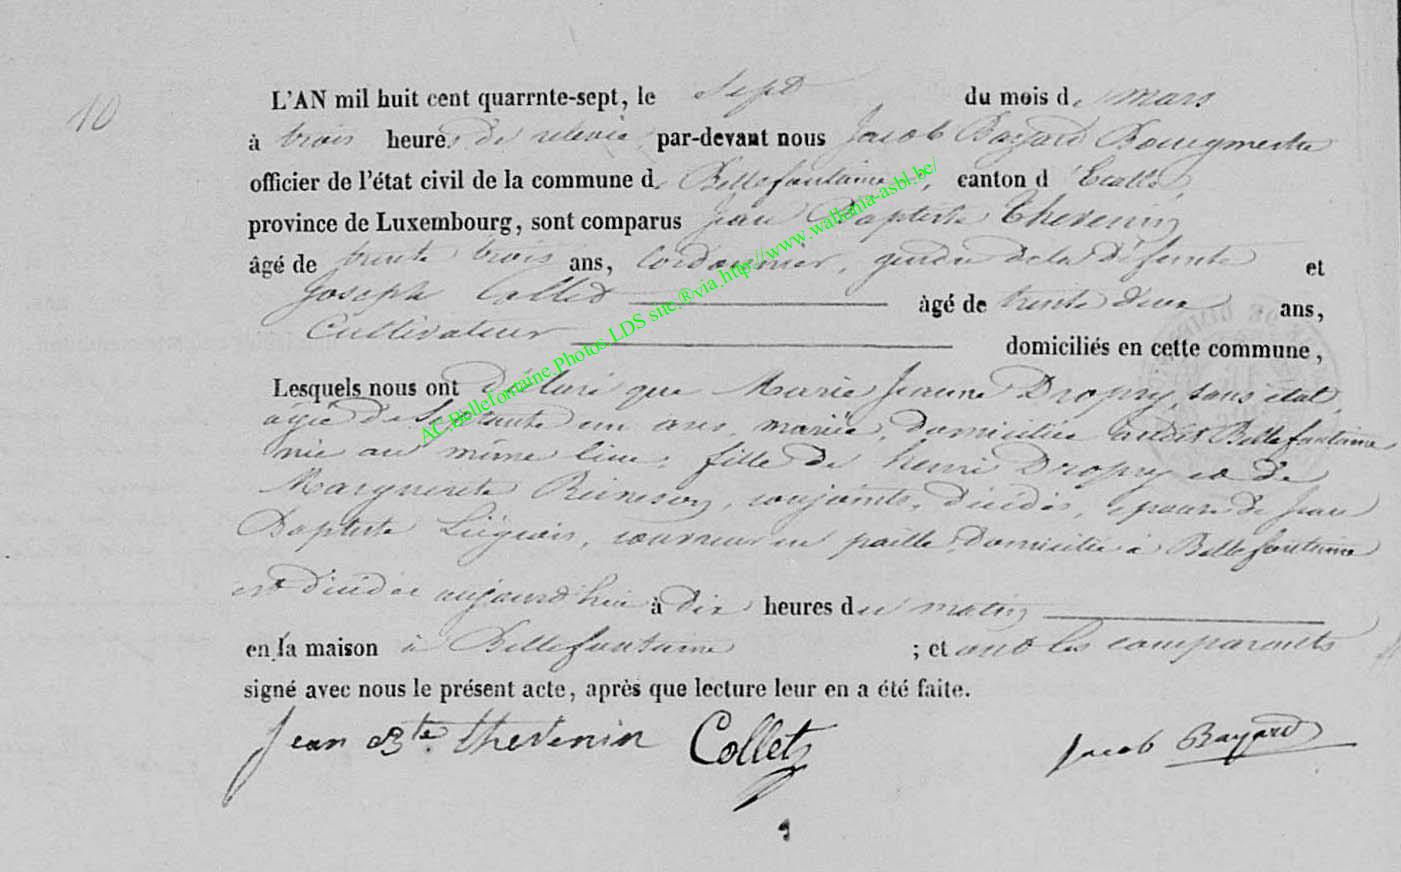 10
L'AN mil huit cent quarrnte-sept, le sept du mois de mars
à trois heures de relevée par-devant nous Jacob Bayard Bourgmestre
officier de l'état civil de la commune de Bellefontaine, canton d'Etalle,
province de Luxembourg, sont comparus Jean Baptiste Thevenin
âgé de trente trois ans, Cordonnier, gendre de la défunte et
Joseph Collet âgé de trente deux ans,
Cultivateur domiciliés en cette commune,
Lesquels nous ont déclaré que Marie Jeanne Dropsy sans état
agée de Septante un ans, mariée, domiciliée audit Bellefontaine
née au même lieu, fille de henri Dropsy et de
Marguerite, conjoints, décédés, épouse de Jean
Baptiste Liégeois, en paille domicilié à Bellefontaine
est décédée aujourd'hui à dix heures du matin
en la maison à Bellefontaine ; et ont les comparants
signé avec nous le présent acte, après que lecture leur en a été faite.
Jean Bte thevenin Collet Jacob Bayard
AC.Bellefontaine.Photos.LDS site.®via.http://www.wallonia-asbl.be/